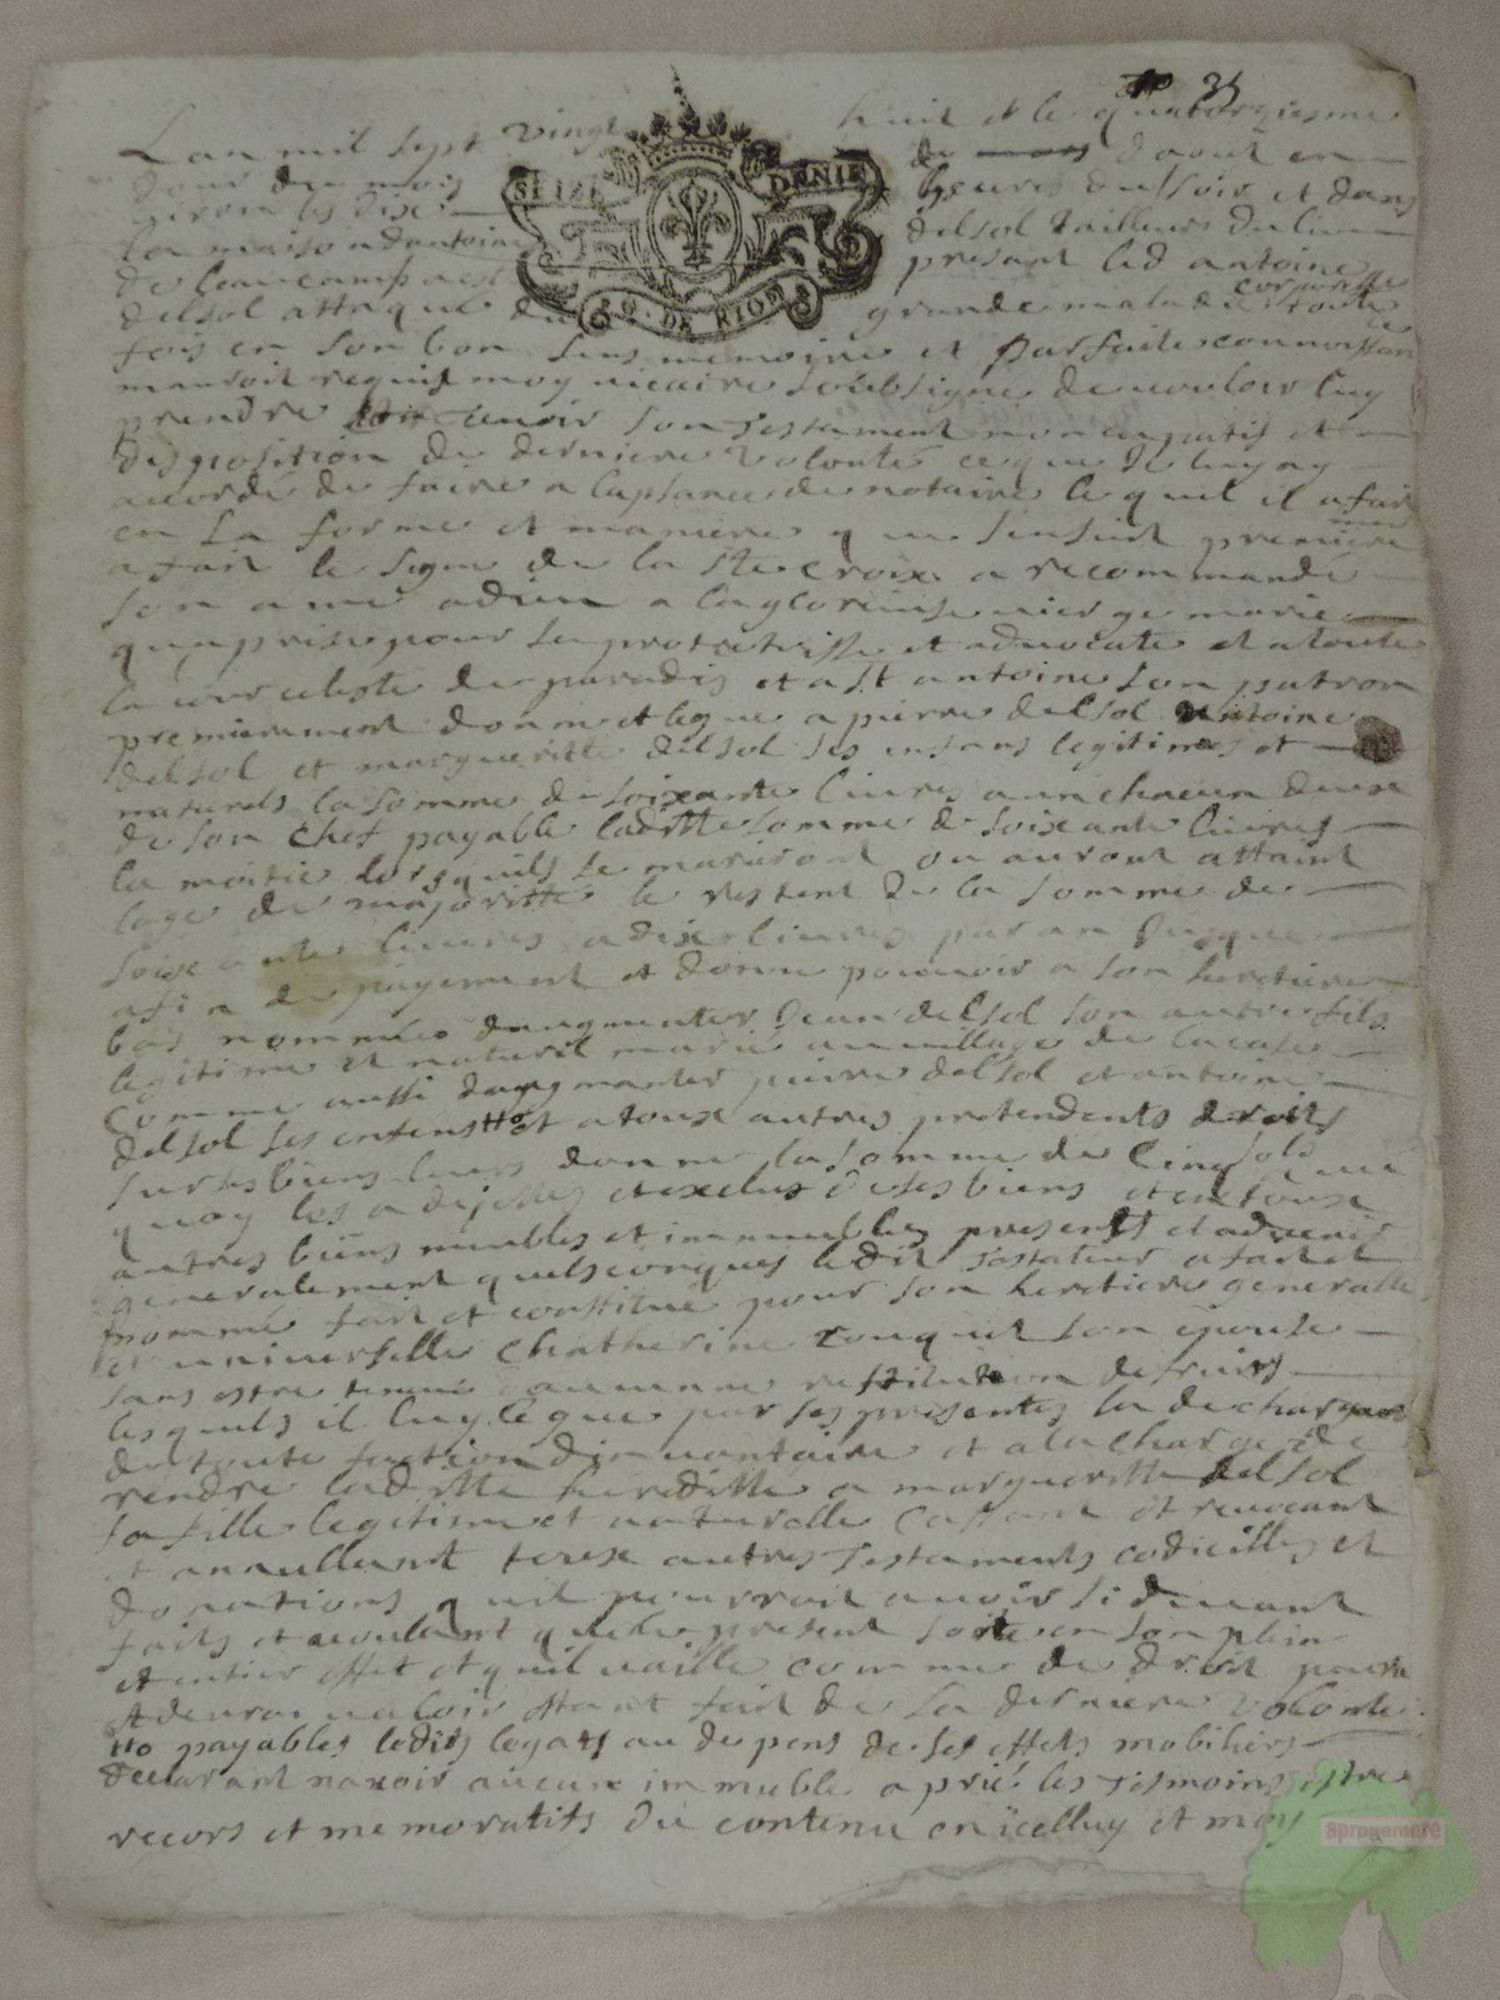 35
Lan mil sept vingt huit et le quatorziesme
Jour du mois de mars daout en
viron les dixe heures du soir et dans
la maison dantoine delsol tailleur du lieu
de beaucamp aest presant led antoine
SEIZE DENIE
G. DE RIOM
delsol attaqué du grande maladie corporelle toute
fois en son bon sens memoire et parfaite connoissan
ce
mauroit requis moy vicaire soubsigné de vouloir luy
prendre recevoir son testament noncupatif et
disposition de derniere volonté ce que Je luy ay
accordé de faire a labsance de notaire lequel il a fait
en la forme et maniere que sensuit premiere
ment
a fait le signe de la Ste croix a recommandé
son ame a dieu a la glorieuse vierge marie
qua prise pour sa protetrisse et advocate et a toute
la cour celeste du paradis et a st antoine son patron
premierement donne et legue a pierre delsol antoine
delsol et margueritte delsol ses enfans legitimes et
naturels la somme de soixante livres a un chacun deux
de son chef payable laditte somme de soixante livres
la moitié lorsquils se mariront ou auront attaint
lage de majoritté le restent de la somme de
soixante livres a dix livres par an Jusques
a fin de payement et donne pouvoir a son heretiere
bas nommée daugmenter Jean delsol son autre fils
legitime et naturel marié au village de lacase
Comme aussi daugmanter pierre delsol et antoine
delsol ses enfens tto et a toux autres pretendents droits
sur ses biens leurs donne la somme de Cinq sols
quoy les a dejettes et exclus de ses biens et en toux
autres biens meubles et immeubles presents et advenir
generalement quelsconques ledit testateur a fait et
nommé fait et constitué pour son heretiere generalle
et universelle Chatherine rouquet son epouse
sans estre tenue a aucune restitution de fruits
lesquels il luy legue par ses presentes la dechargeant
de toute faction dinvantaire et a la charge de
rendre laditte hereditté a margueritte delsol
sa fille legitime et naturelle Cassant et revocant
et anullant toux autres testaments codicilles et
donations quil pourroit avoir si devant
faits et voulant que le present sorte en son plein
et entier effet et quil vaille comme de droit pourra
et devra valoir ettant fait de sa derniere volonte
tto payables ledits legats au depens de ses effets mobiliers
declarant navoir aucun immeuble a prié les tesmoins estre
recors et memoratifs du contenu en icelluy et moy
aprogemere